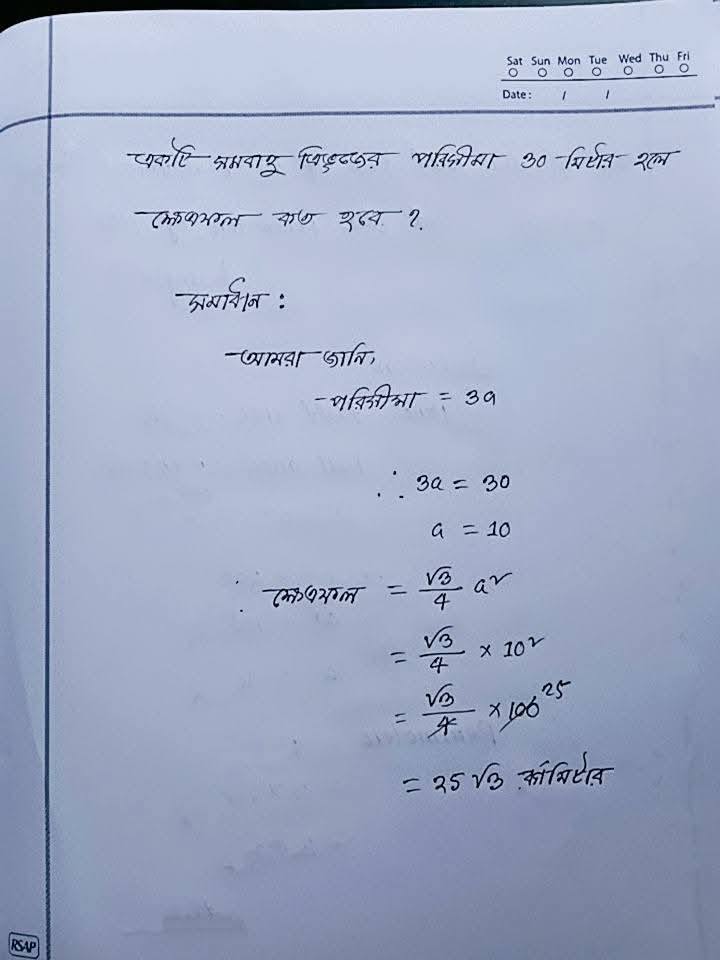 Sat Sun Mon Tue Wed Thu Fri
Date: / /
একটি সমবাহু ত্রিভুজের পরিসীমা 30 মিটার হলে
ক্ষেত্রফল কত হবে ?
সমাধান :
আমরা জানি,
পরিসীমা = 3a
∴ 3a = 30
a = 10
∴ ক্ষেত্রফল = √3/4 a²
= √3/4 × 10²
= √3/4 × 100 25
= 25√3 বর্গমিটার
RSAP